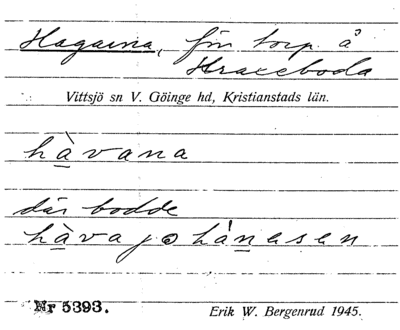 Hagarna, för torp å
Vittsjö sn V. Göinge hd, Kristianstads län.
hàvana
där bodde
hàvajohànesen
Nr 5393.
Erik W. Bergenrud 1945.